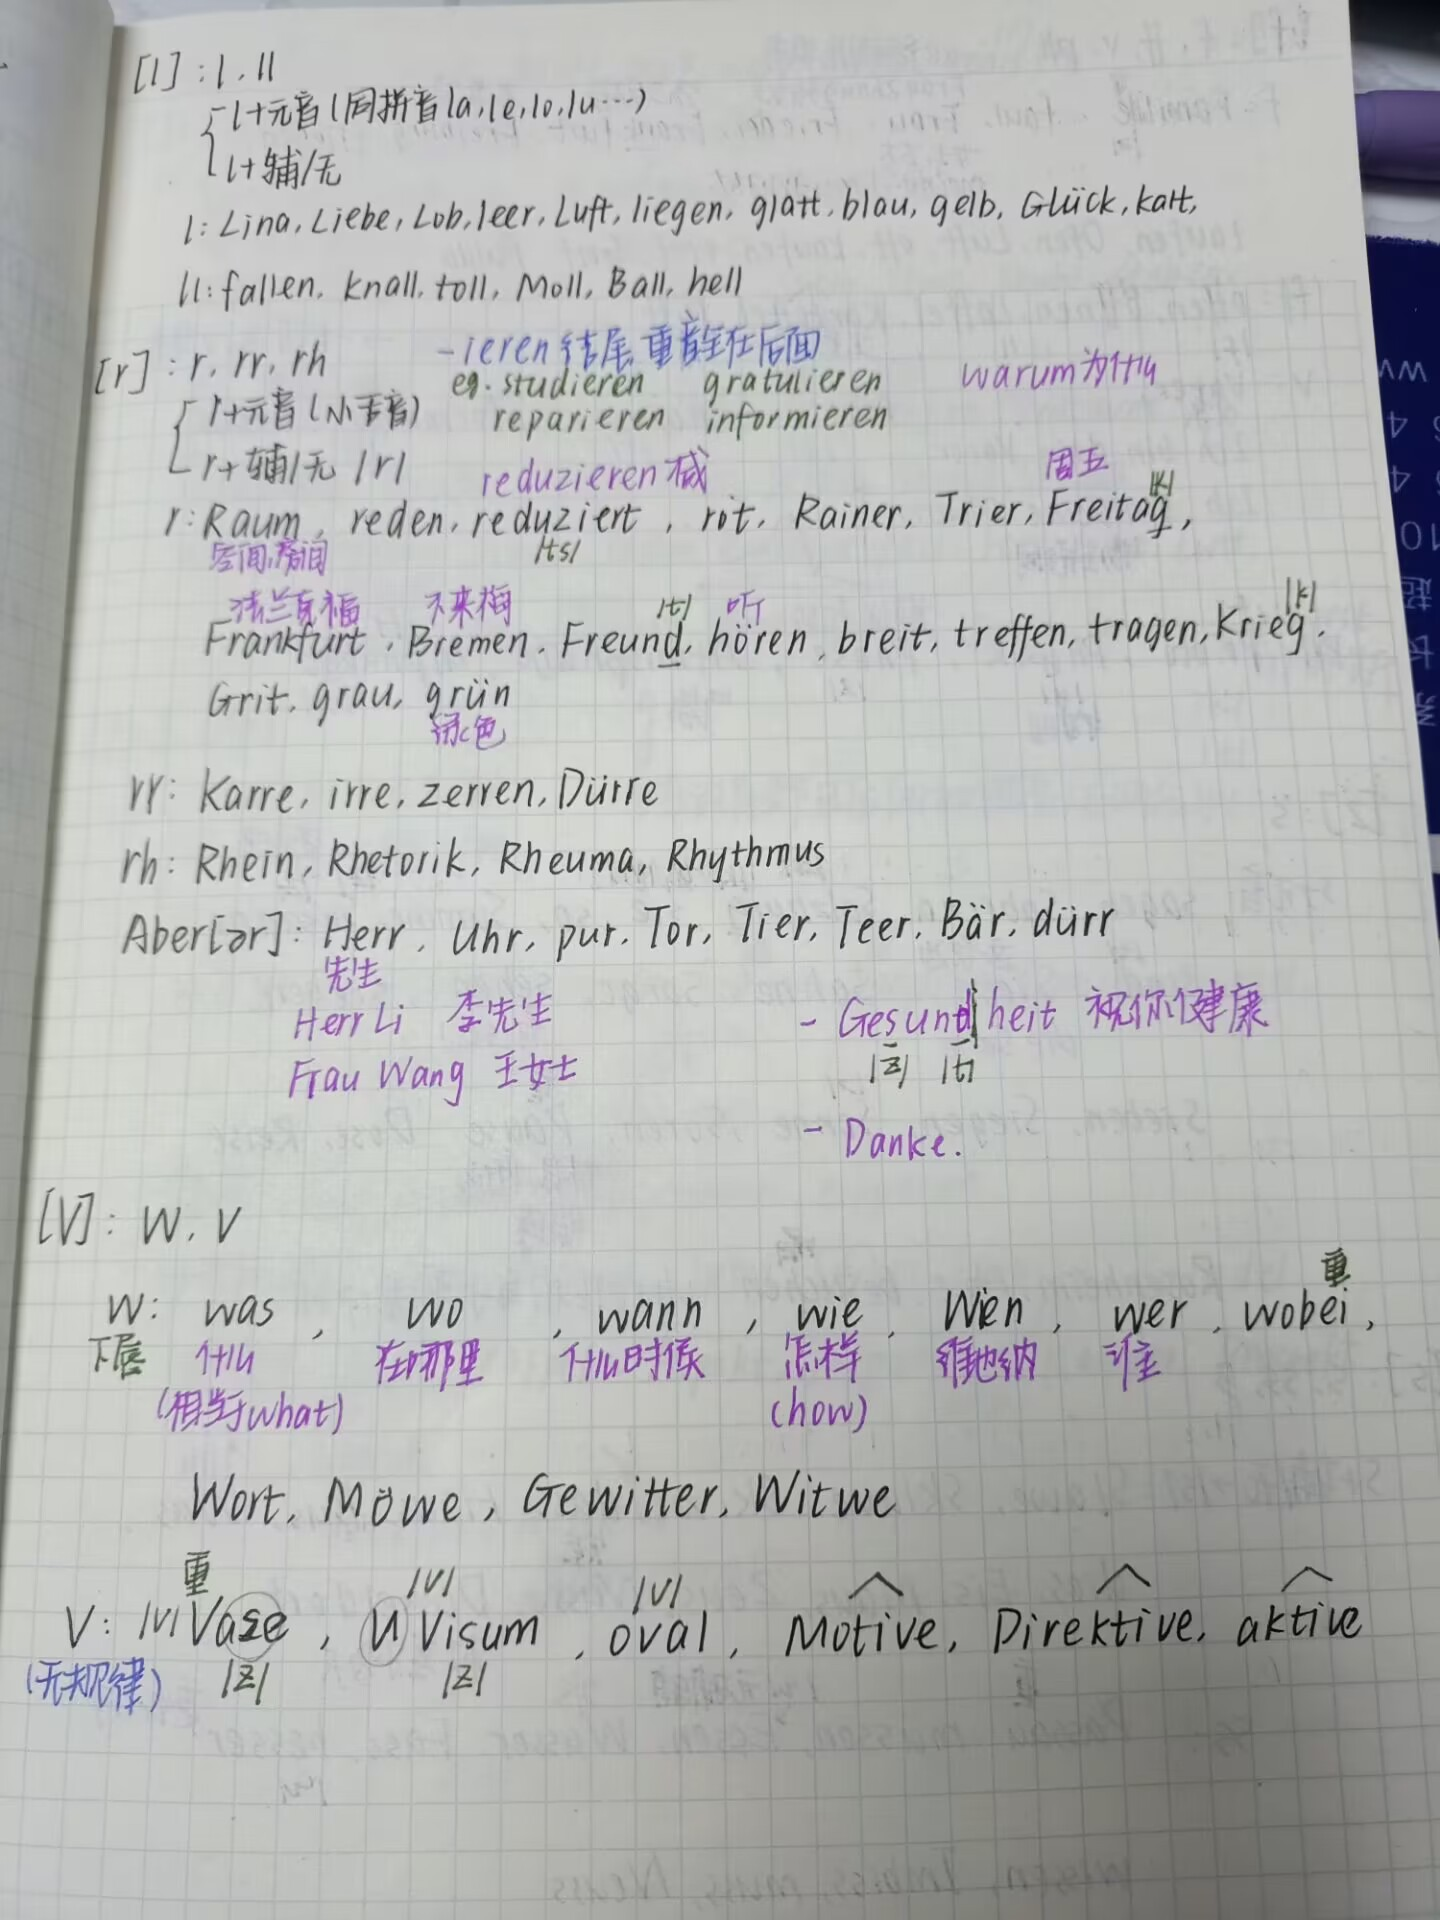 [l] : l, ll
l+元音(同拼音la, le, lo, lu…)
l+辅/无
l: Lina, Liebe, Lob, leer, Luft, liegen, glatt, blau, gelb, Glück, kalt,
ll: fallen, knall, toll, Moll, Ball, hell
[r] : r, rr, rh
-ieren结尾,重音在后面
r+元音(小舌音)
eg. studieren gratulieren
warum为什么
reparieren informieren
r+辅/无 /r/
reduzieren 减
周五
/k/
r: Raum, reden, reduziert, rot, Rainer, Trier, Freitag,
空间,房间
/ts/
法兰克福 不来梅 /t/ 听 /k/
Frankfurt, Bremen, Freund, hören, breit, treffen, tragen, Krieg,
Grit, grau, grün
绿色
rr: Karre, irre, zerren, Dürre
rh: Rhein, Rhetorik, Rheuma, Rhythmus
Aber[ər]: Herr, Uhr, pur, Tor, Tier, Teer, Bär, dürr
先生
Herr Li 李先生
- Gesund|heit 祝你健康
/z/ /t/
Frau Wang 王女士
- Danke.
[V] : W, V
重
W: was, wo, wann, wie, Wien, wer, wobei,
下唇 什么 在哪里 什么时候 怎样 维也纳 谁
(相当于what) (how)
Wort, Möwe, Gewitter, Witwe
重 /v/ /v/
V: /v/ Vase, U Visum, oval, Motive, Direktive, aktive
(无规律) /z/ /z/